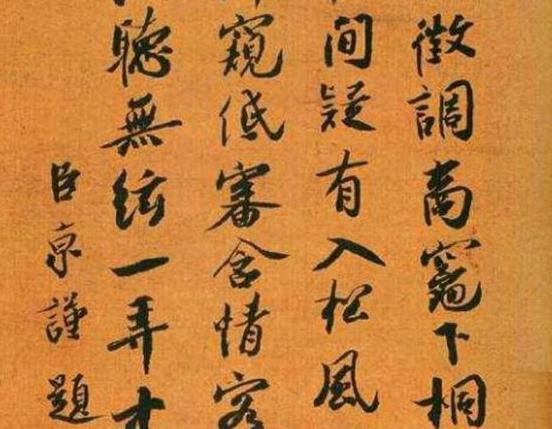 徵調商竈下桐
間疑有入松風
窺低審含情客
聽無絃一弄
臣京謹題